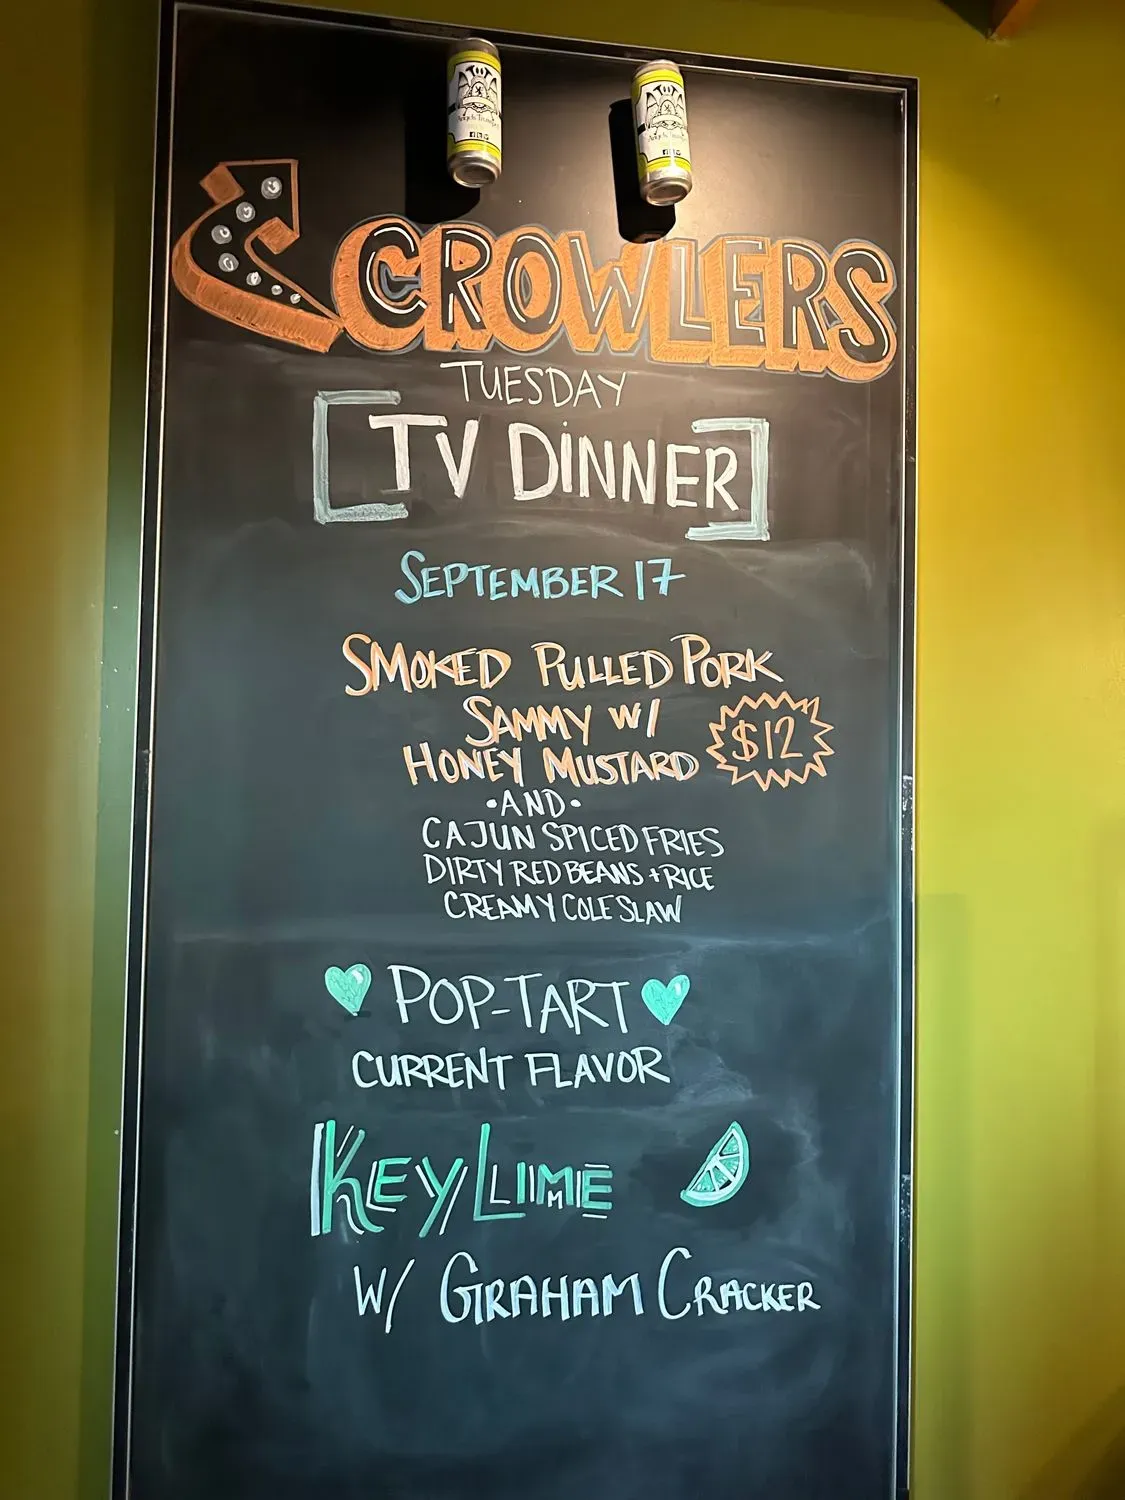 CROWLERS
TUESDAY
TV DINNER
SEPTEMBER 17
SMOKED PULLED PORK
SAMMY W/
HONEY MUSTARD
$12
•AND•
CAJUN SPICED FRIES
DIRTY RED BEANS + RICE
CREAMY COLESLAW
POP-TART
CURRENT FLAVOR
KEY LIME
W/ GRAHAM CRACKER